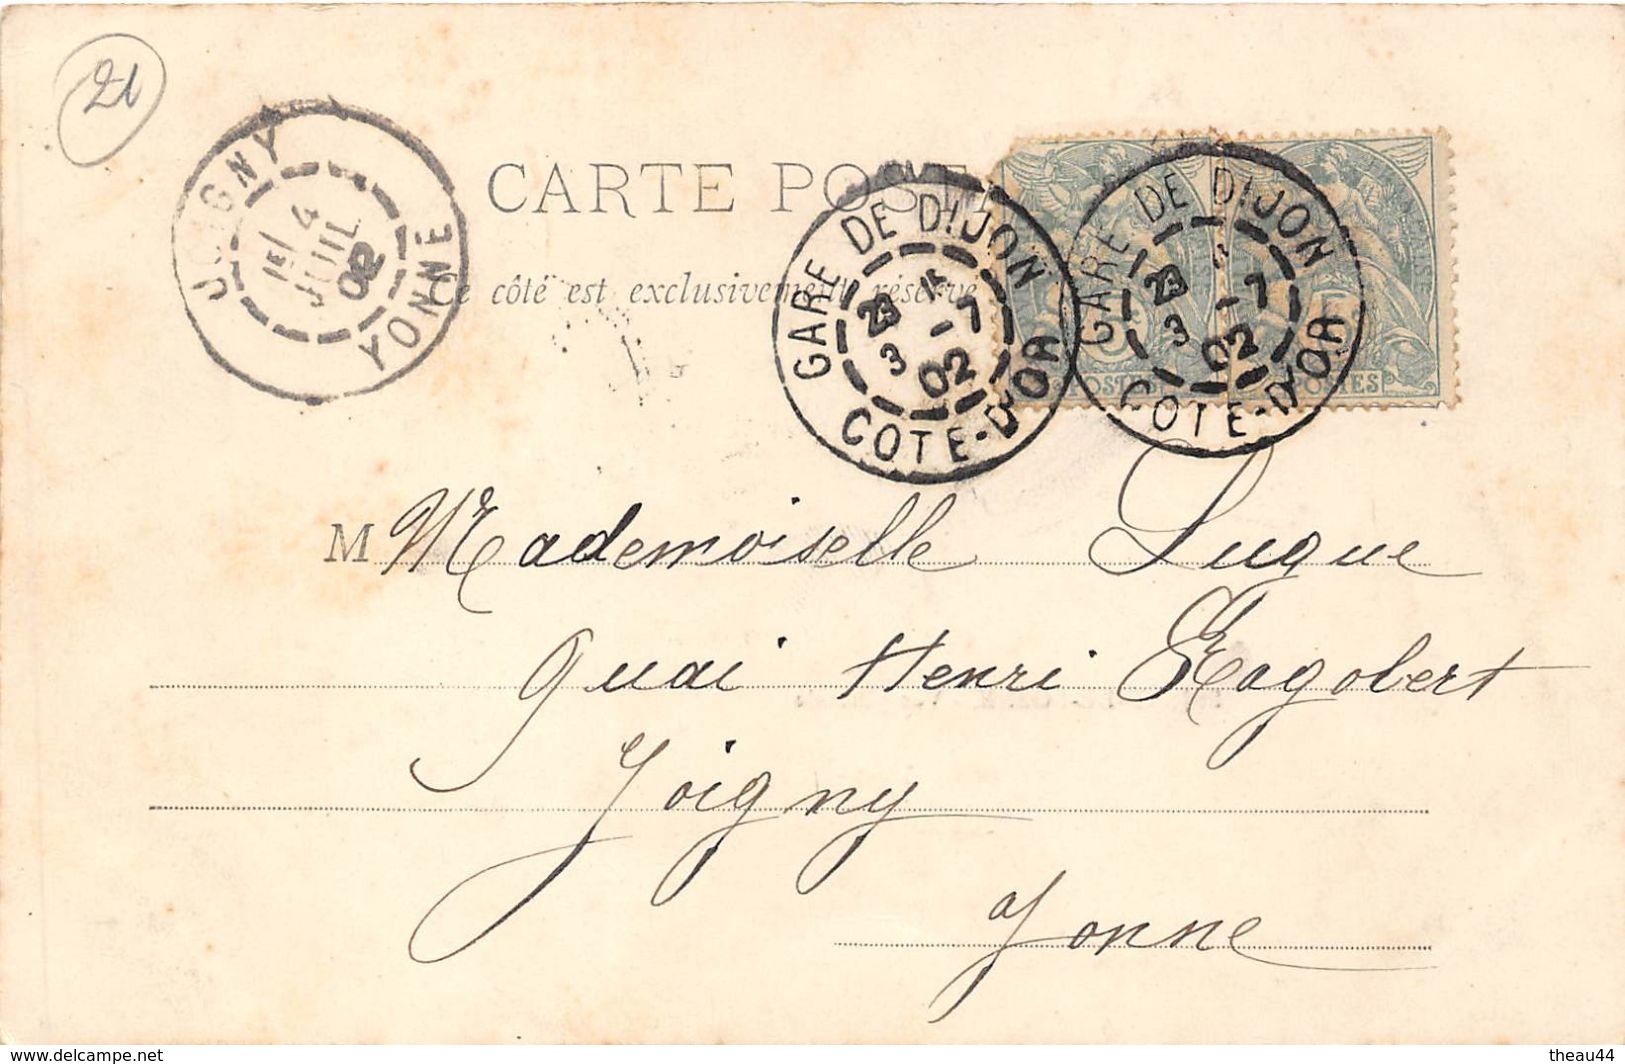 21
JOIGNY
1E/ 4
JUIL
02
YONNE
CARTE POSTA
Ce côté est exclusivement réservé
GARE DE DIJON
23
3 -7
02
COTE-D'OR
GARE DE DIJON
23
3 -7
02
COTE-D'OR
POSTES
POSTES
M Mademoiselle Lugue
Quai Henri Ragobert
Joigny
Yonne
www.delcampe.net
theau44